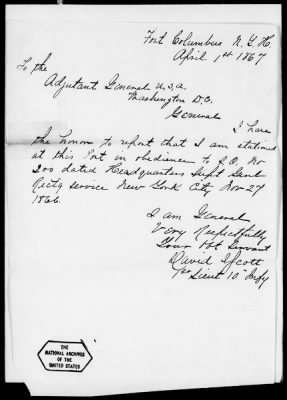 Fort Columbus N.Y.H.
April 1st 1867
To the
Adjutant General U.S.A.
Washington D.C.
General
I have
the honor to report that I am stationed
at this Post in obedience to S.O. No
200 dated Headquarters Supt Genl
Rectg Service New York City Nov 27
1866.
I am General
Very Respectfully
Your Obt Servant
David Scott
1st Lieut 10" Infy
THE
NATIONAL ARCHIVES
OF THE
UNITED STATES